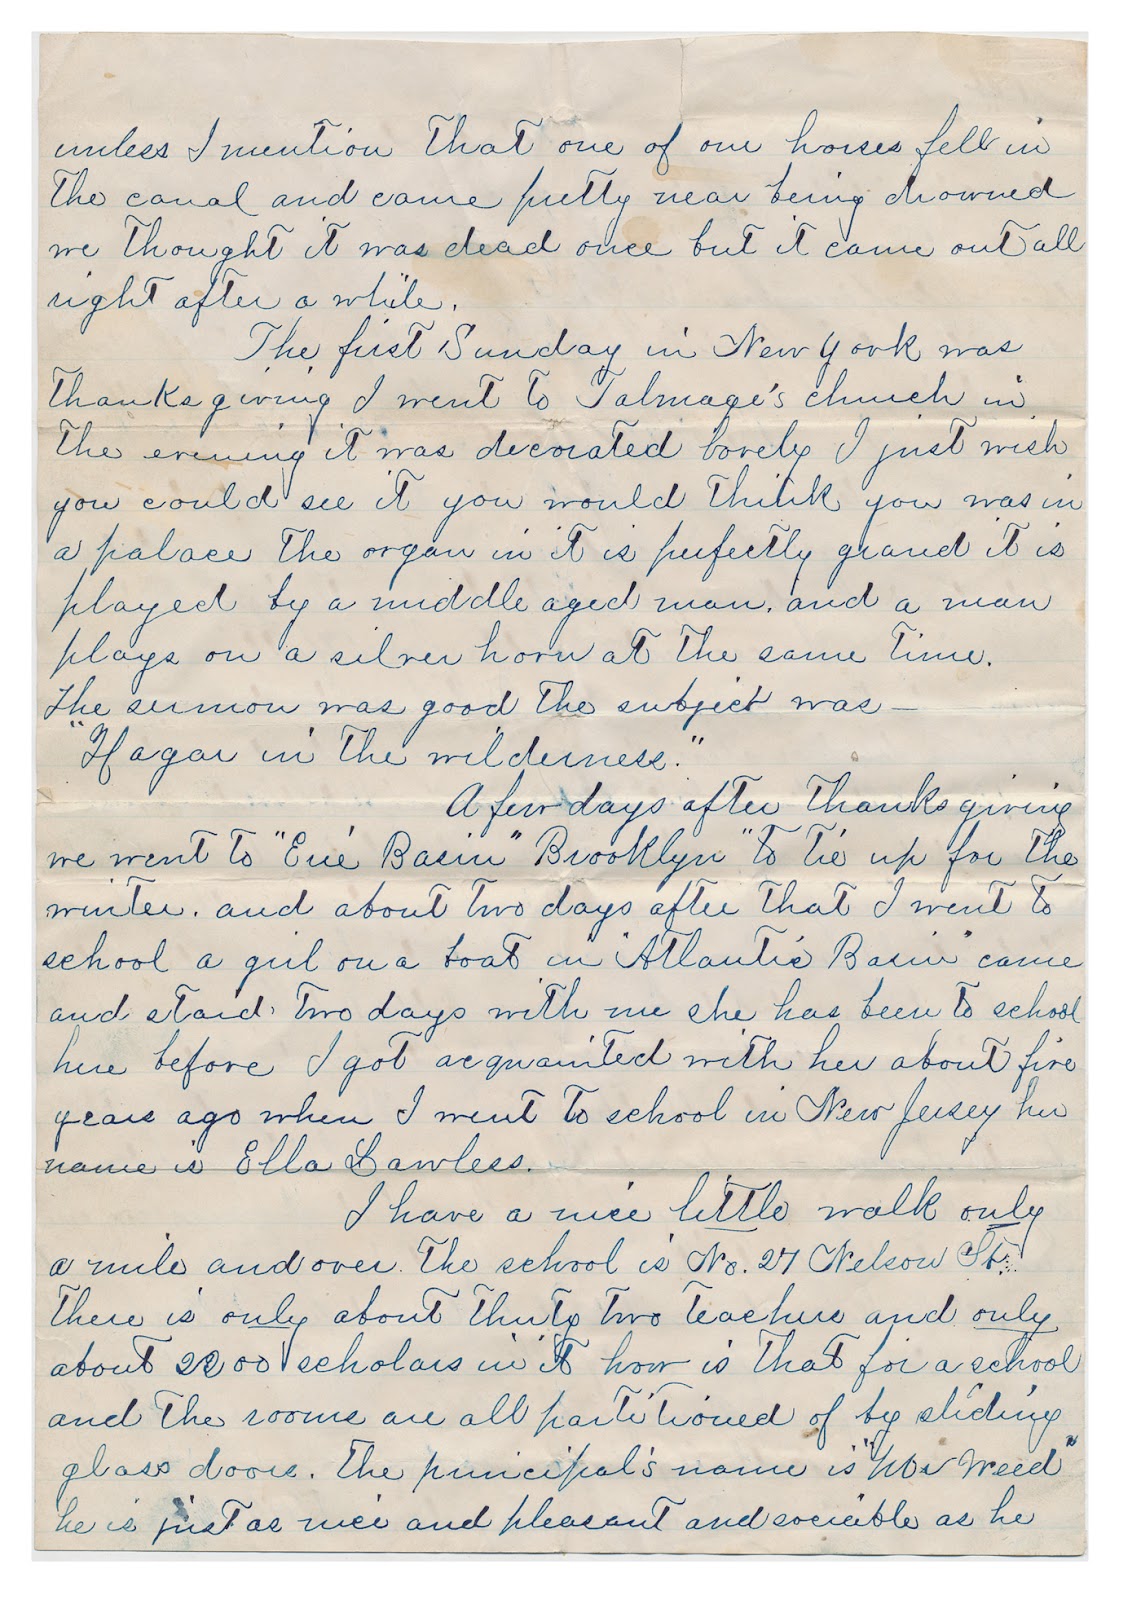 unless I mention that one of our horses fell in
the canal and came pretty near being drowned
we thought it was dead once but it came out all
right after a while.
The first Sunday in New York was
thanksgiving I went to Talmage's church in
the evening it was decorated lovely I just wish
you could see it you would think you was in
a palace the organ in it is perfectly grand it is
played by a middle aged man. and a man
plays on a silver horn at the same time.
The sermon was good the subject was—
"Hagar in the wilderness."
A few days after thanksgiving
we went to "Erie Basin" Brooklyn" to tie up for the
winter. and about two days after that I went to
school a girl on a boat in "Atlantic Basin" came
and staid two days with me she has been to school
here before I got acquainted with her about five
years ago when I went to school in New Jersey her
name is Ella Lawless.
I have a nice little walk only
a mile and over. The school is No. 27 Nelson St.
there is only about thirty two teachers and only
about 2200 scholars in it how is that for a school
and the rooms are all partitioned of by sliding
glass doors. the principal's name is "Mr Weed"
he is just as nice and pleasant and sociable as he